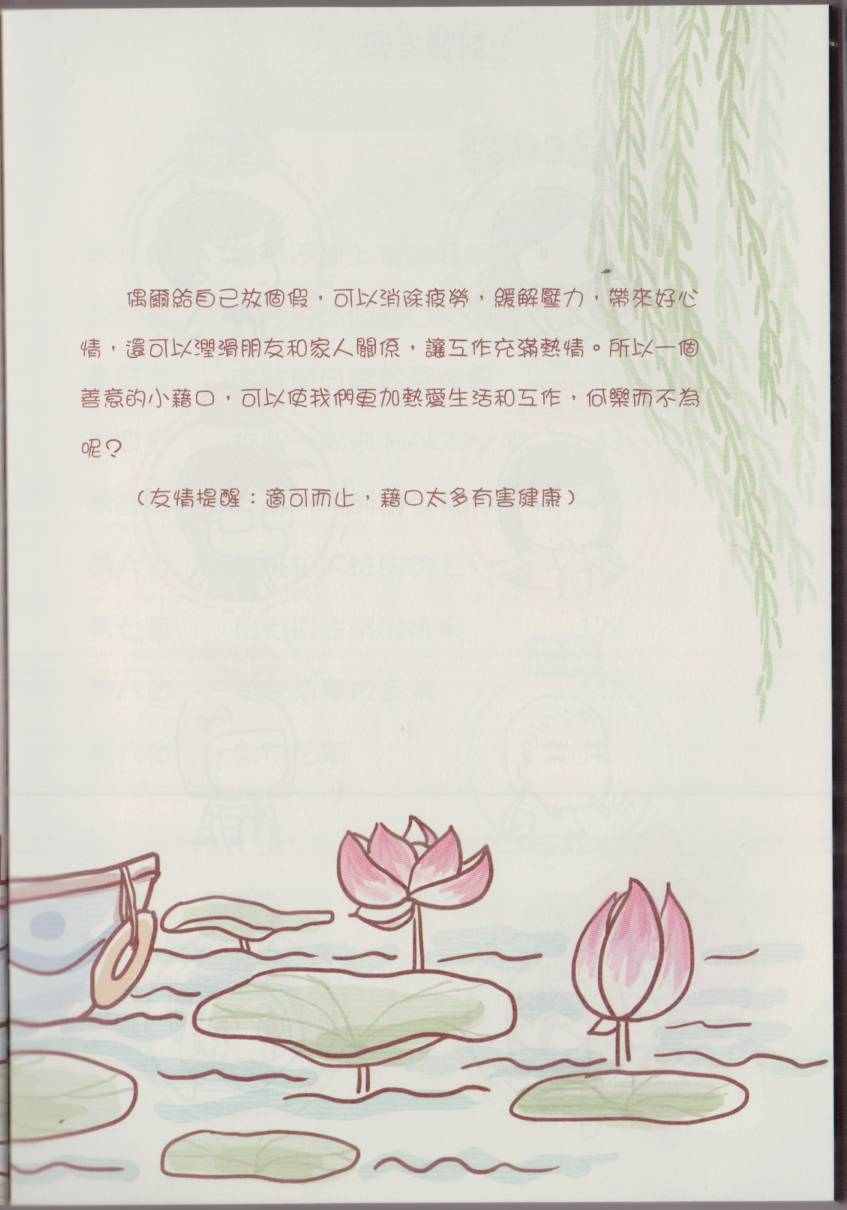 偶爾給自己放個假，可以消除疲勞，緩解壓力，帶來好心
情，還可以潤滑朋友和家人關係，讓工作充滿熱情。所以一個
善意的小藉口，可以使我們更加熱愛生活和工作，何樂而不為
呢？
（友情提醒：適可而止，藉口太多有害健康）